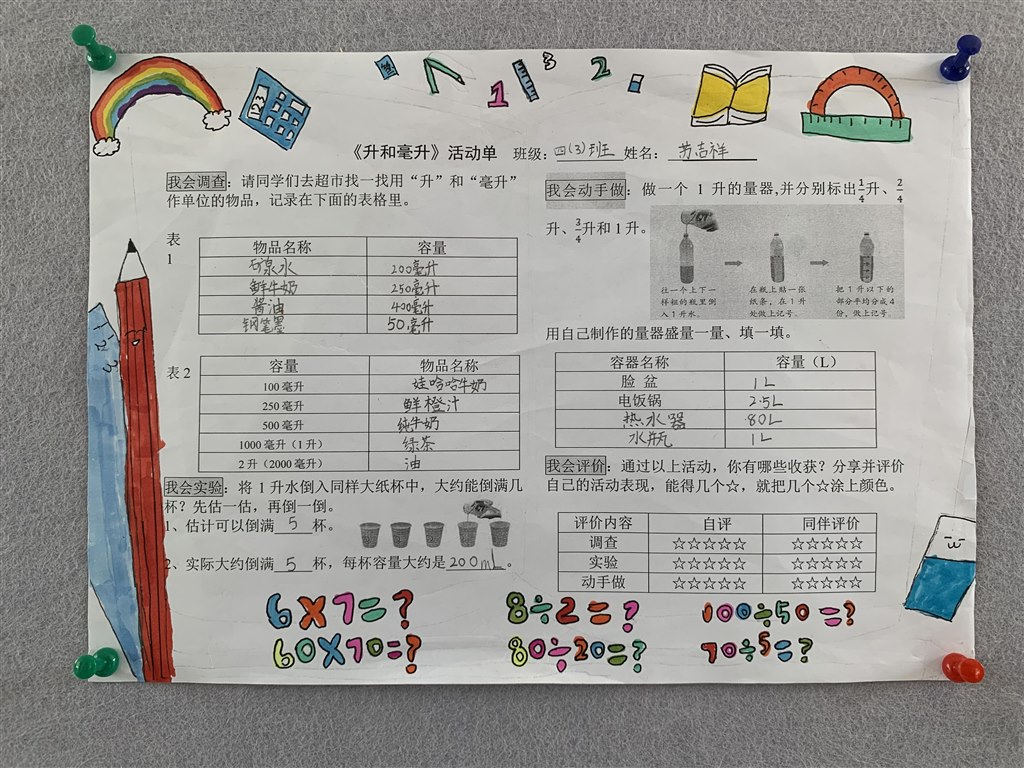 《升和毫升》活动单 班级：四(3)班 姓名：苏吉祥
我会调查：请同学们去超市找一找用“升”和“毫升”
作单位的物品，记录在下面的表格里。
表
1
物品名称 容量
矿泉水 200毫升
鲜牛奶 250毫升
酱油 400毫升
钢笔墨 50毫升
表2
容量 物品名称
100毫升 娃哈哈牛奶
250毫升 鲜橙汁
500毫升 纯牛奶
1000毫升（1升） 绿茶
2升（2000毫升） 油
我会实验：将1升水倒入同样大纸杯中，大约能倒满几
杯？先估一估，再倒一倒。
1、估计可以倒满 5 杯。
2、实际大约倒满 5 杯，每杯容量大约是200mL。
我会动手做：做一个1升的量器,并分别标出1/4升、2/4
升、3/4升和1升。
往一个上下一
样粗的瓶里倒
入1升水。
在瓶上贴一张
纸条，在1升
处做上记号。
把1升以下的
部分平均分成4
份，做上记号。
用自己制作的量器盛量一量、填一填。
容器名称 容量（L）
脸盆 1L
电饭锅 2.5L
热水器 80L
水瓶 1L
我会评价：通过以上活动，你有哪些收获？分享并评价
自己的活动表现，能得几个☆，就把几个☆涂上颜色。
评价内容 自评 同伴评价
调查 ☆☆☆☆☆ ☆☆☆☆☆
实验 ☆☆☆☆☆ ☆☆☆☆☆
动手做 ☆☆☆☆☆ ☆☆☆☆☆
6×7=? 8÷2=? 100÷50=?
60×70=? 80÷20=? 70÷5=?
123
1
3
2